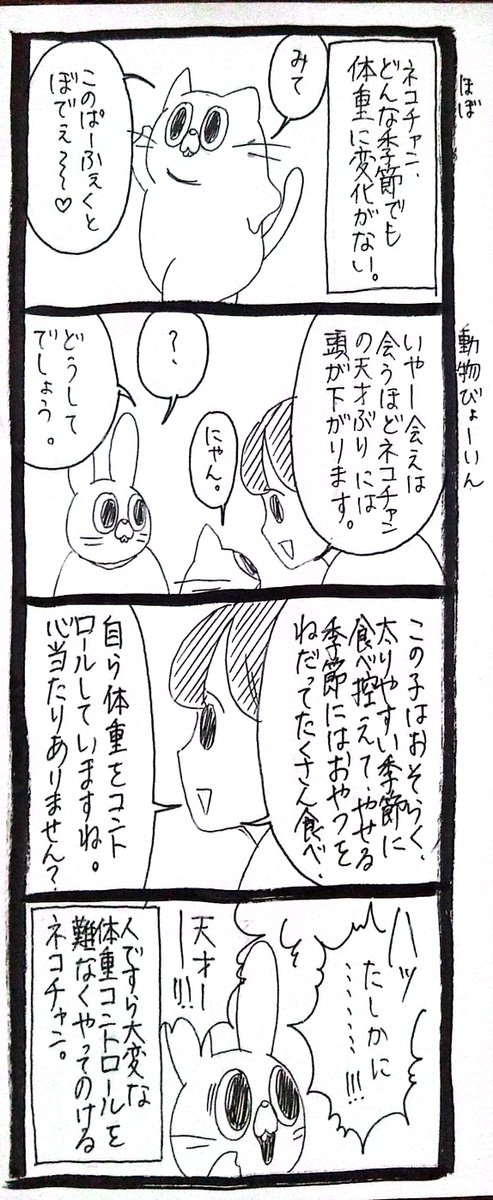 ほぼ
ネコチャン、
どんな季節でも
体重に変化がない。
みて
このぱーふぇくと
ぼでぇ〜〜♡
動物びょーいん
いやー会えば
会うほどネコチャン
の天才ぶりには
頭が下がります。
にゃん。
?
どうして
でしょう。
この子はおそらく、
太りやすい季節に
食べ控えて、やせる
季節にはおやつを
ねだってたくさん食べ、
自ら体重をコント
ロールしていますね。
心当たりありません?
ハッ
たしかに
………!!!
天才ーー!!!
人ですら大変な
体重コントロールを
難なくやってのける
ネコチャン。